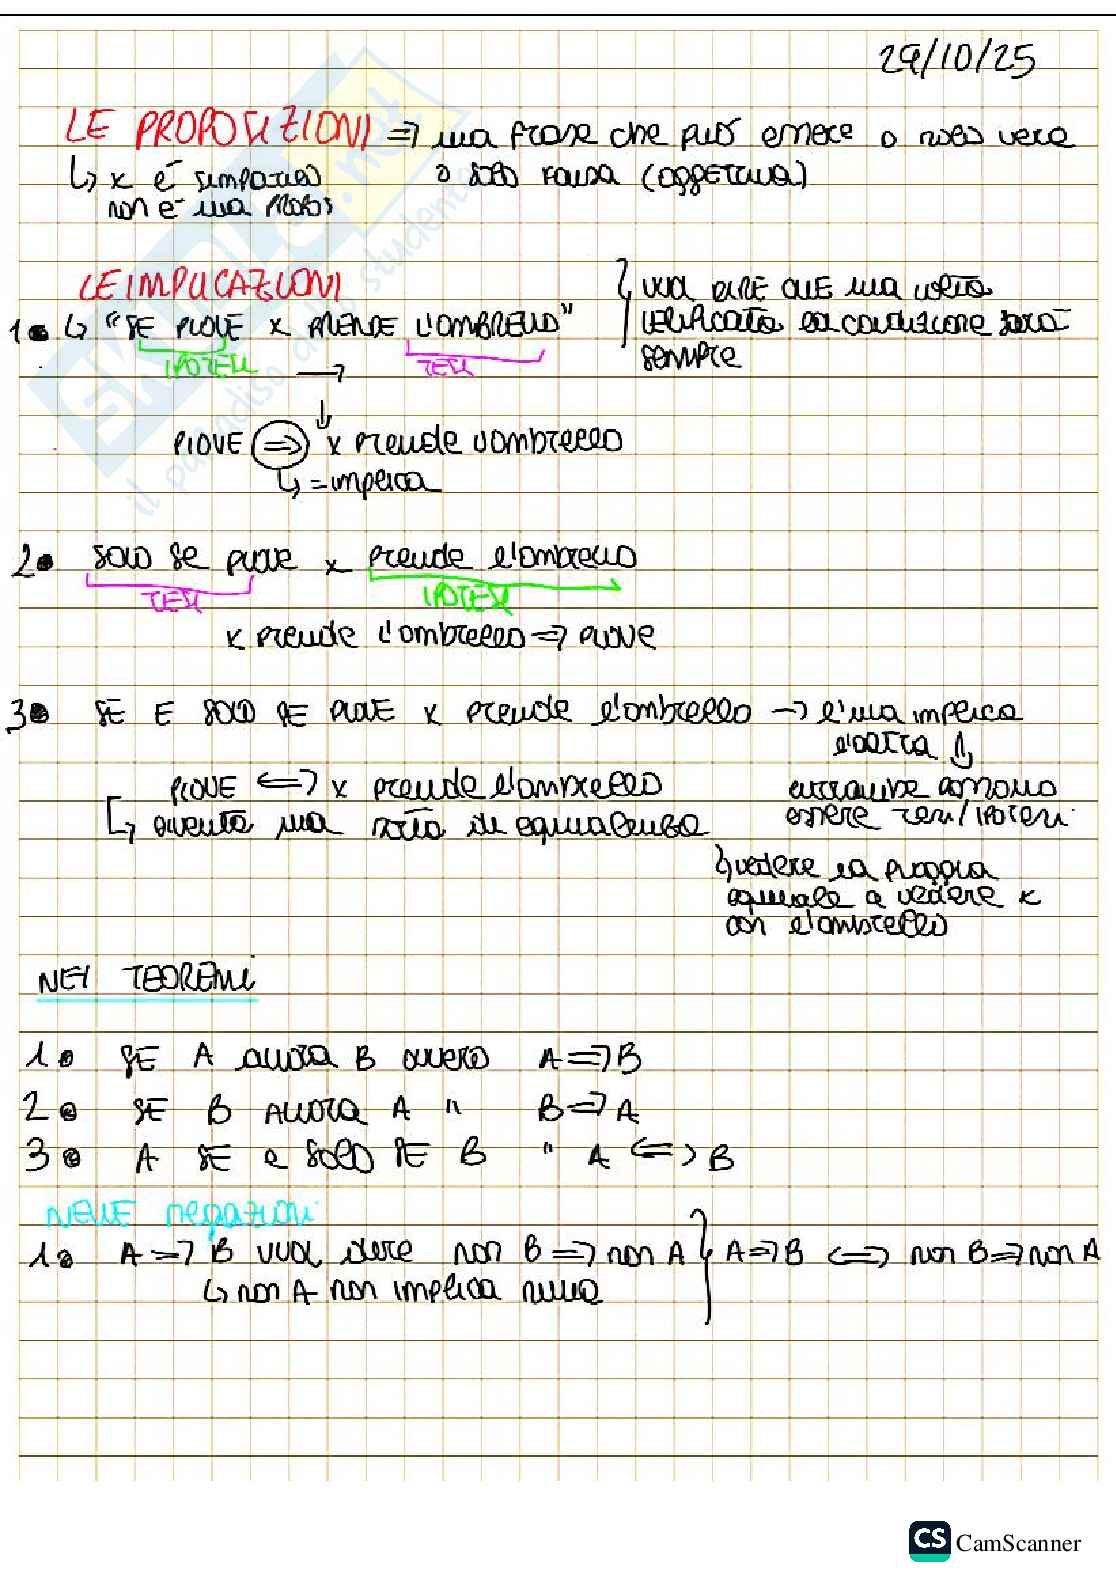 29/10/25
LE PROPOSIZIONI => una frase che può essere o solo vera
↳ x è simpatico o solo falsa (oggettiva)
non è una PROPOS
LE IMPLICAZIONI
1. ↳ "SE PIOVE x PRENDE L'OMBRELLO"
IPOTESI → TESI
VUOL DIRE CHE una volta
VERIFICATA la condizione sarà
sempre
PIOVE => x prende l'ombrello
↳ = implica
2. SOLO SE piove x prende l'ombrello
TESI IPOTESI
x prende l'ombrello => piove
3. SE E SOLO SE PIOVE x prende l'ombrello → l'una implica
l'altra ↓
PIOVE <=> x prende l'ombrello
↳ diventa una sorta di equivalenza
entrambe possono
essere tesi/ipotesi
↳ vedere la pioggia
equivale a vedere x
con l'ombrello
NEI TEOREMI
1. SE A allora B ovvero A => B
2. SE B ALLORA A " B => A
3. A SE e SOLO SE B " A <=> B
NELLE negazioni
1. A => B VUOL dire non B => non A } A => B <=> non B => non A
↳ non A non implica nulla
SKUOLA.net
il paradiso dello studente
CS CamScanner